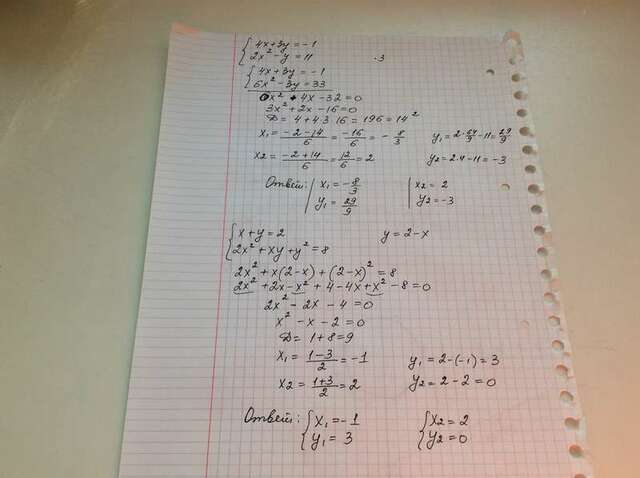 { 4x+3y=-1
2x² - y = 11 ·3
{ 4x+3y=-1
6x² - 3y = 33
6x² + 4x - 32 = 0
3x² + 2x - 16 = 0
D = 4 + 4·3·16 = 196 = 14²
x₁ = (-2-14)/6 = -16/6 = -8/3 y₁ = 2·64/9 - 11 = 29/9
x₂ = (-2+14)/6 = 12/6 = 2 y₂ = 2·4 - 11 = -3
Ответ: | x₁ = -8/3 | x₂ = 2
y₁ = 29/9 y₂ = -3
{ x + y = 2 y = 2 - x
2x² + xy + y² = 8
2x² + x(2-x) + (2-x)² = 8
2x² + 2x - x² + 4 - 4x + x² - 8 = 0
2x² - 2x - 4 = 0
x² - x - 2 = 0
D = 1 + 8 = 9
x₁ = (1-3)/2 = -1 y₁ = 2-(-1) = 3
x₂ = (1+3)/2 = 2 y₂ = 2 - 2 = 0
Ответ: { x₁ = -1 { x₂ = 2
y₁ = 3 y₂ = 0